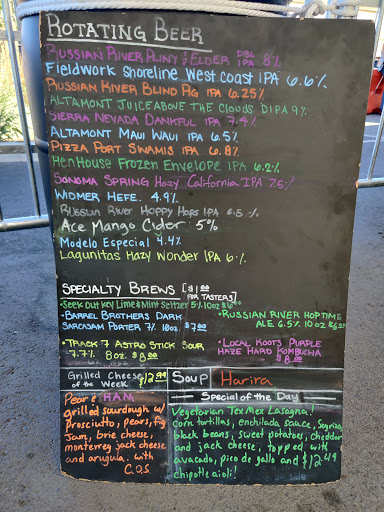 ROTATING BEER
RUSSIAN RIVER PLINY THE ELDER DBL IPA 8%
Fieldwork Shoreline West Coast IPA 6.6%
RUSSIAN RIVER BLIND PIG IPA 6.25%
ALTAMONT JUICE ABOVE THE CLOUDS DIPA 9%
SIERRA NEVADA DANKFUL IPA 7.4%
ALTAMONT MAUI WAUI IPA 6.5%
PIZZA PORT SWAMIS IPA 6.8%
HenHouse Frozen Envelope IPA 6.2%
Sonoma Spring Hazy California IPA 7.5%
WIDMER HEFE. 4.9%
RUSSIAN RIVER HOPPY HOPS IPA 6.5%
Ace Mango Cider 5%
Modelo Especial 4.4%
Lagunitas Hazy Wonder IPA 6%
SPECIALTY BREWS [$1.00 FOR TASTERS]
•Seek Out Key Lime & Mint Seltzer 5% 10oz $6
•BARREL BROTHERS DARK
SARCASM PORTER 7% 10oz. $7.00
•RUSSIAN RIVER HOPTIME
ALE 6.5% 10oz
•TRACK 7 ASTRO STICK SOUR
7.7% 8oz. $8.00
•LOCAL ROOTS PURPLE
HAZE HARD KOMBUCHA
$8.00
Grilled Cheese of the Week $12.99
Soup Harira
Pear & HAM
grilled sourdough w/
prosciutto, pears, fig
Jam, brie cheese,
monterrey jack cheese
and arugula. with
C.O.S.
Special of the Day
Vegetarian Tex Mex Lasagna!
corn tortillas, enchilada sauce, Soyrizo,
black beans, sweet potatoes, cheddar
and jack cheese, topped with
avocado, pico de gallo and $12.49
chipotle aioli!